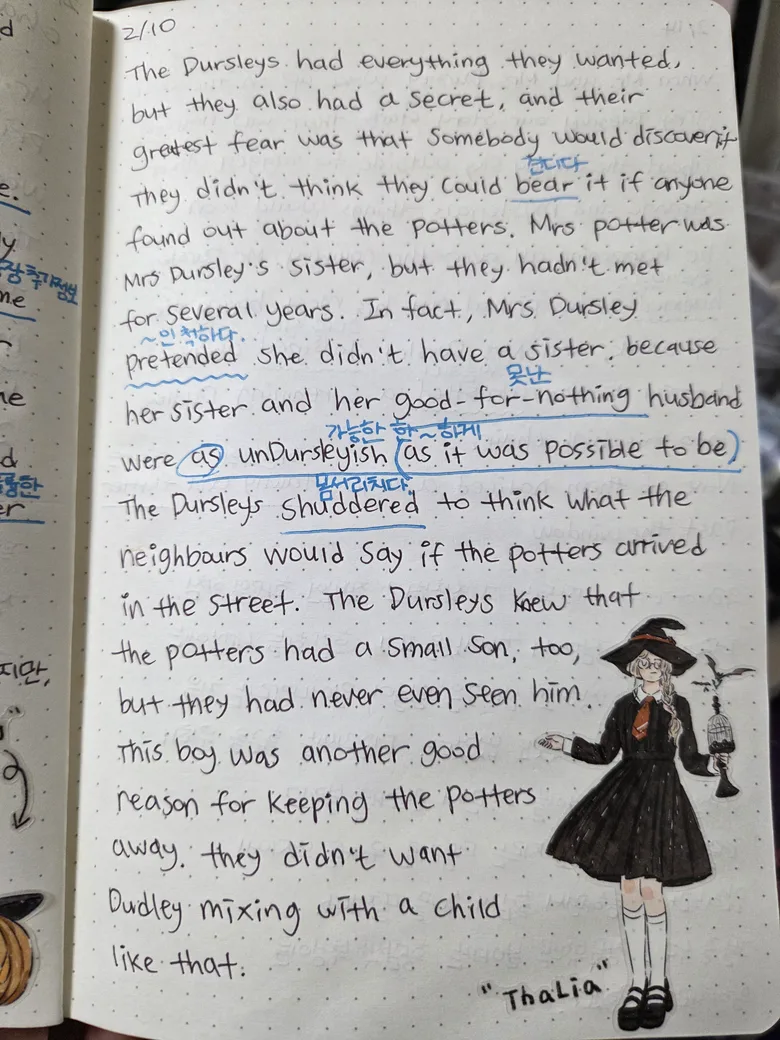 d
2/10
The Dursleys had everything they wanted,
but they also had a secret, and their
greatest fear was that somebody would discover it
견디다
They didn't think they could bear it if anyone
found out about the potters. Mrs potter was
Mrs Dursley's sister, but they hadn't met
for several years. In fact, Mrs. Dursley
~인 척하다.
pretended she didn't have a sister, because
못난
her sister and her good-for-nothing husband
가능한 한 ~하게
were as unDursleyish (as it was possible to be)
몸서리치다
The Dursleys shuddered to think what the
neighbours would say if the potters arrived
in the street. The Dursleys knew that
the potters had a small son, too,
but they had never even seen him.
This boy was another good
reason for keeping the potters
away. they didn't want
Dudley mixing with a child
like that.
"Thalia"
e.
y
me
r
he
d
er
지만,